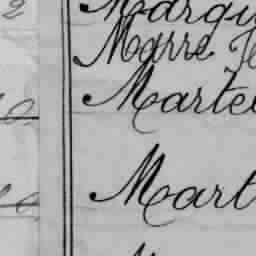 2 Margu
Marre Je
Marte
Mart